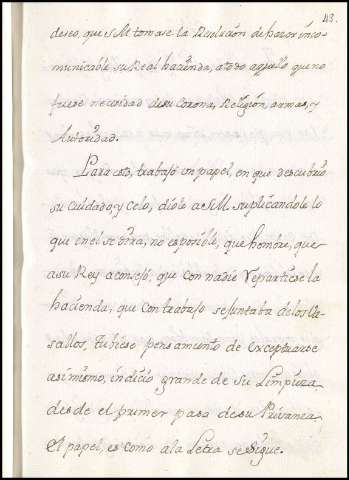 43.
deseo, que S.M. tomase la Resoluz.on de hazer inco-
municable su Real hacienda, atodo aquello que no
fuese necesidad desu Corona, Religion, armas, y
Autoridad.
Para esto, trabajó un papel, en que descubrió
su Cuidado, y Celo, diólo a S.M. suplicandole lo
que enel se dirá, no esposible, que hombre, que
asu Rey aconsejó, que con nadie repartiese la
hacienda, que con trabajo sejuntaba delos Va-
sallos, tubiese pensamiento de exceptuarse
asimismo, indicio grande de su Limpieza,
desde el primer paso desu Privanza,
el papel, es como ala Letra se sigue.